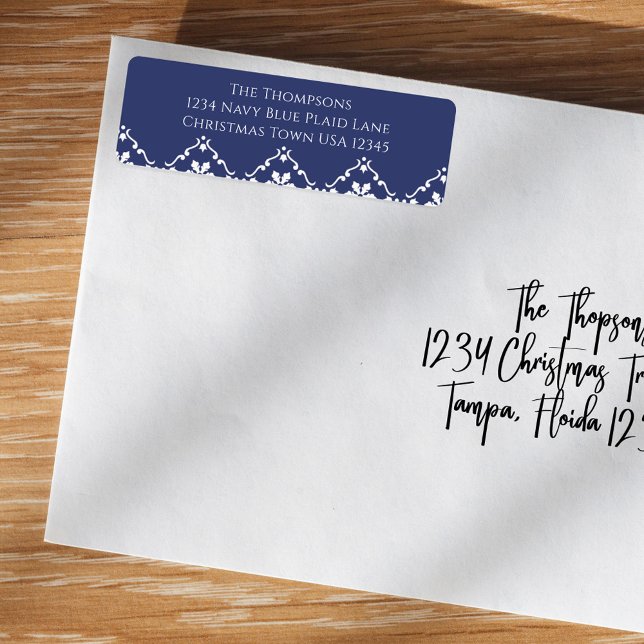 The Thompsons
1234 Navy Blue Plaid Lane
Christmas Town USA 12345
The Thopson
1234 Christmas
Tampa, Floida